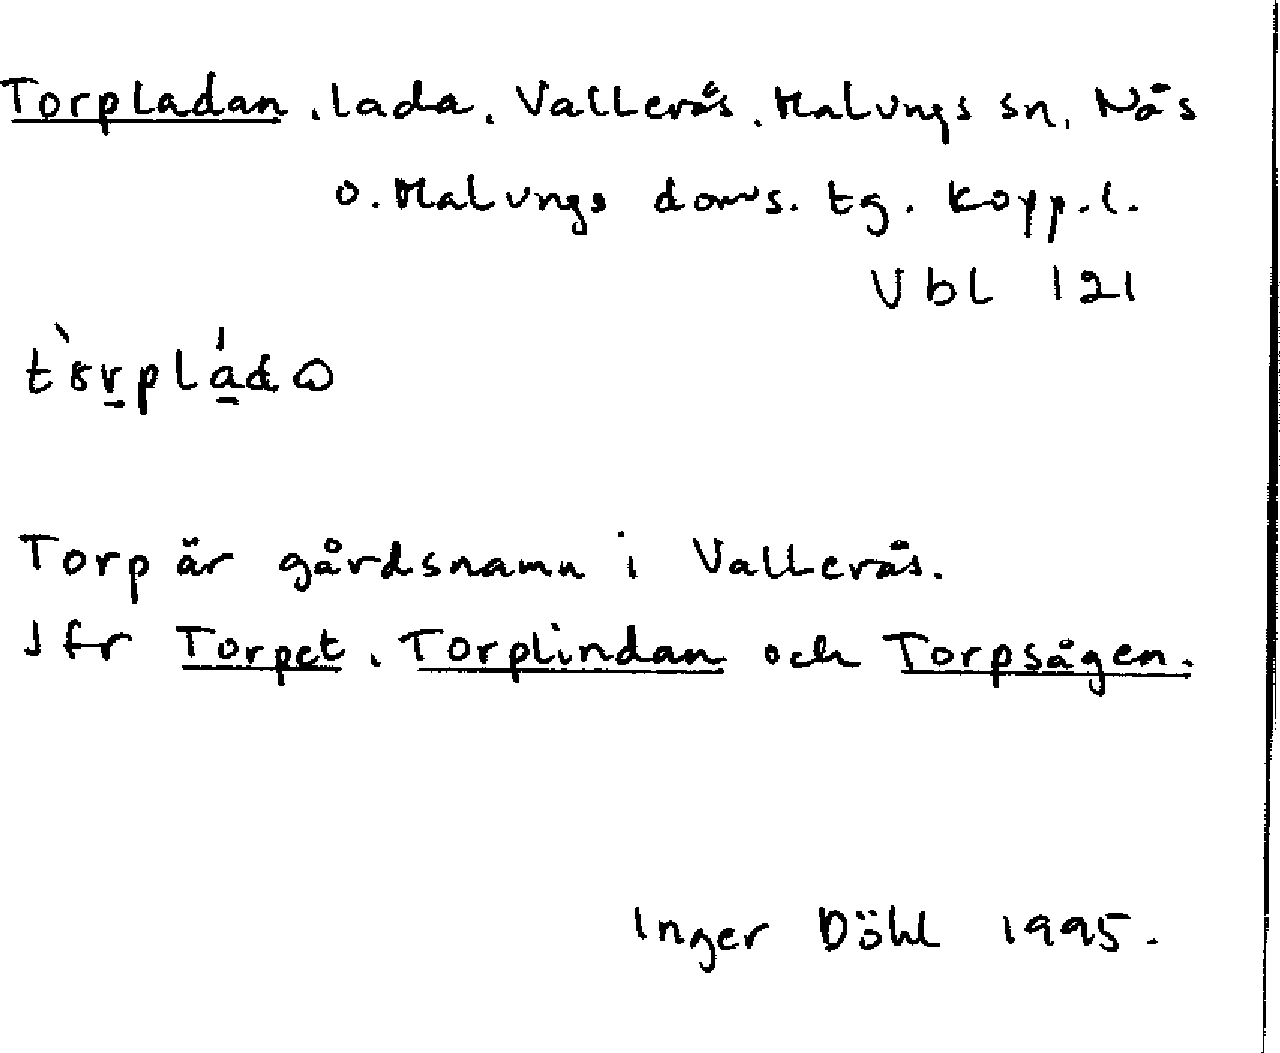 Torpladan, lada, Vallerås, Malungs sn, Nås
o. Malungs doms. tg. Kopp.l.
Vbl 121
Torp är gårdsnamn i Vallerås.
Jfr Torpet, Torplindan och Torpsågen.
Inger Döhl 1995.